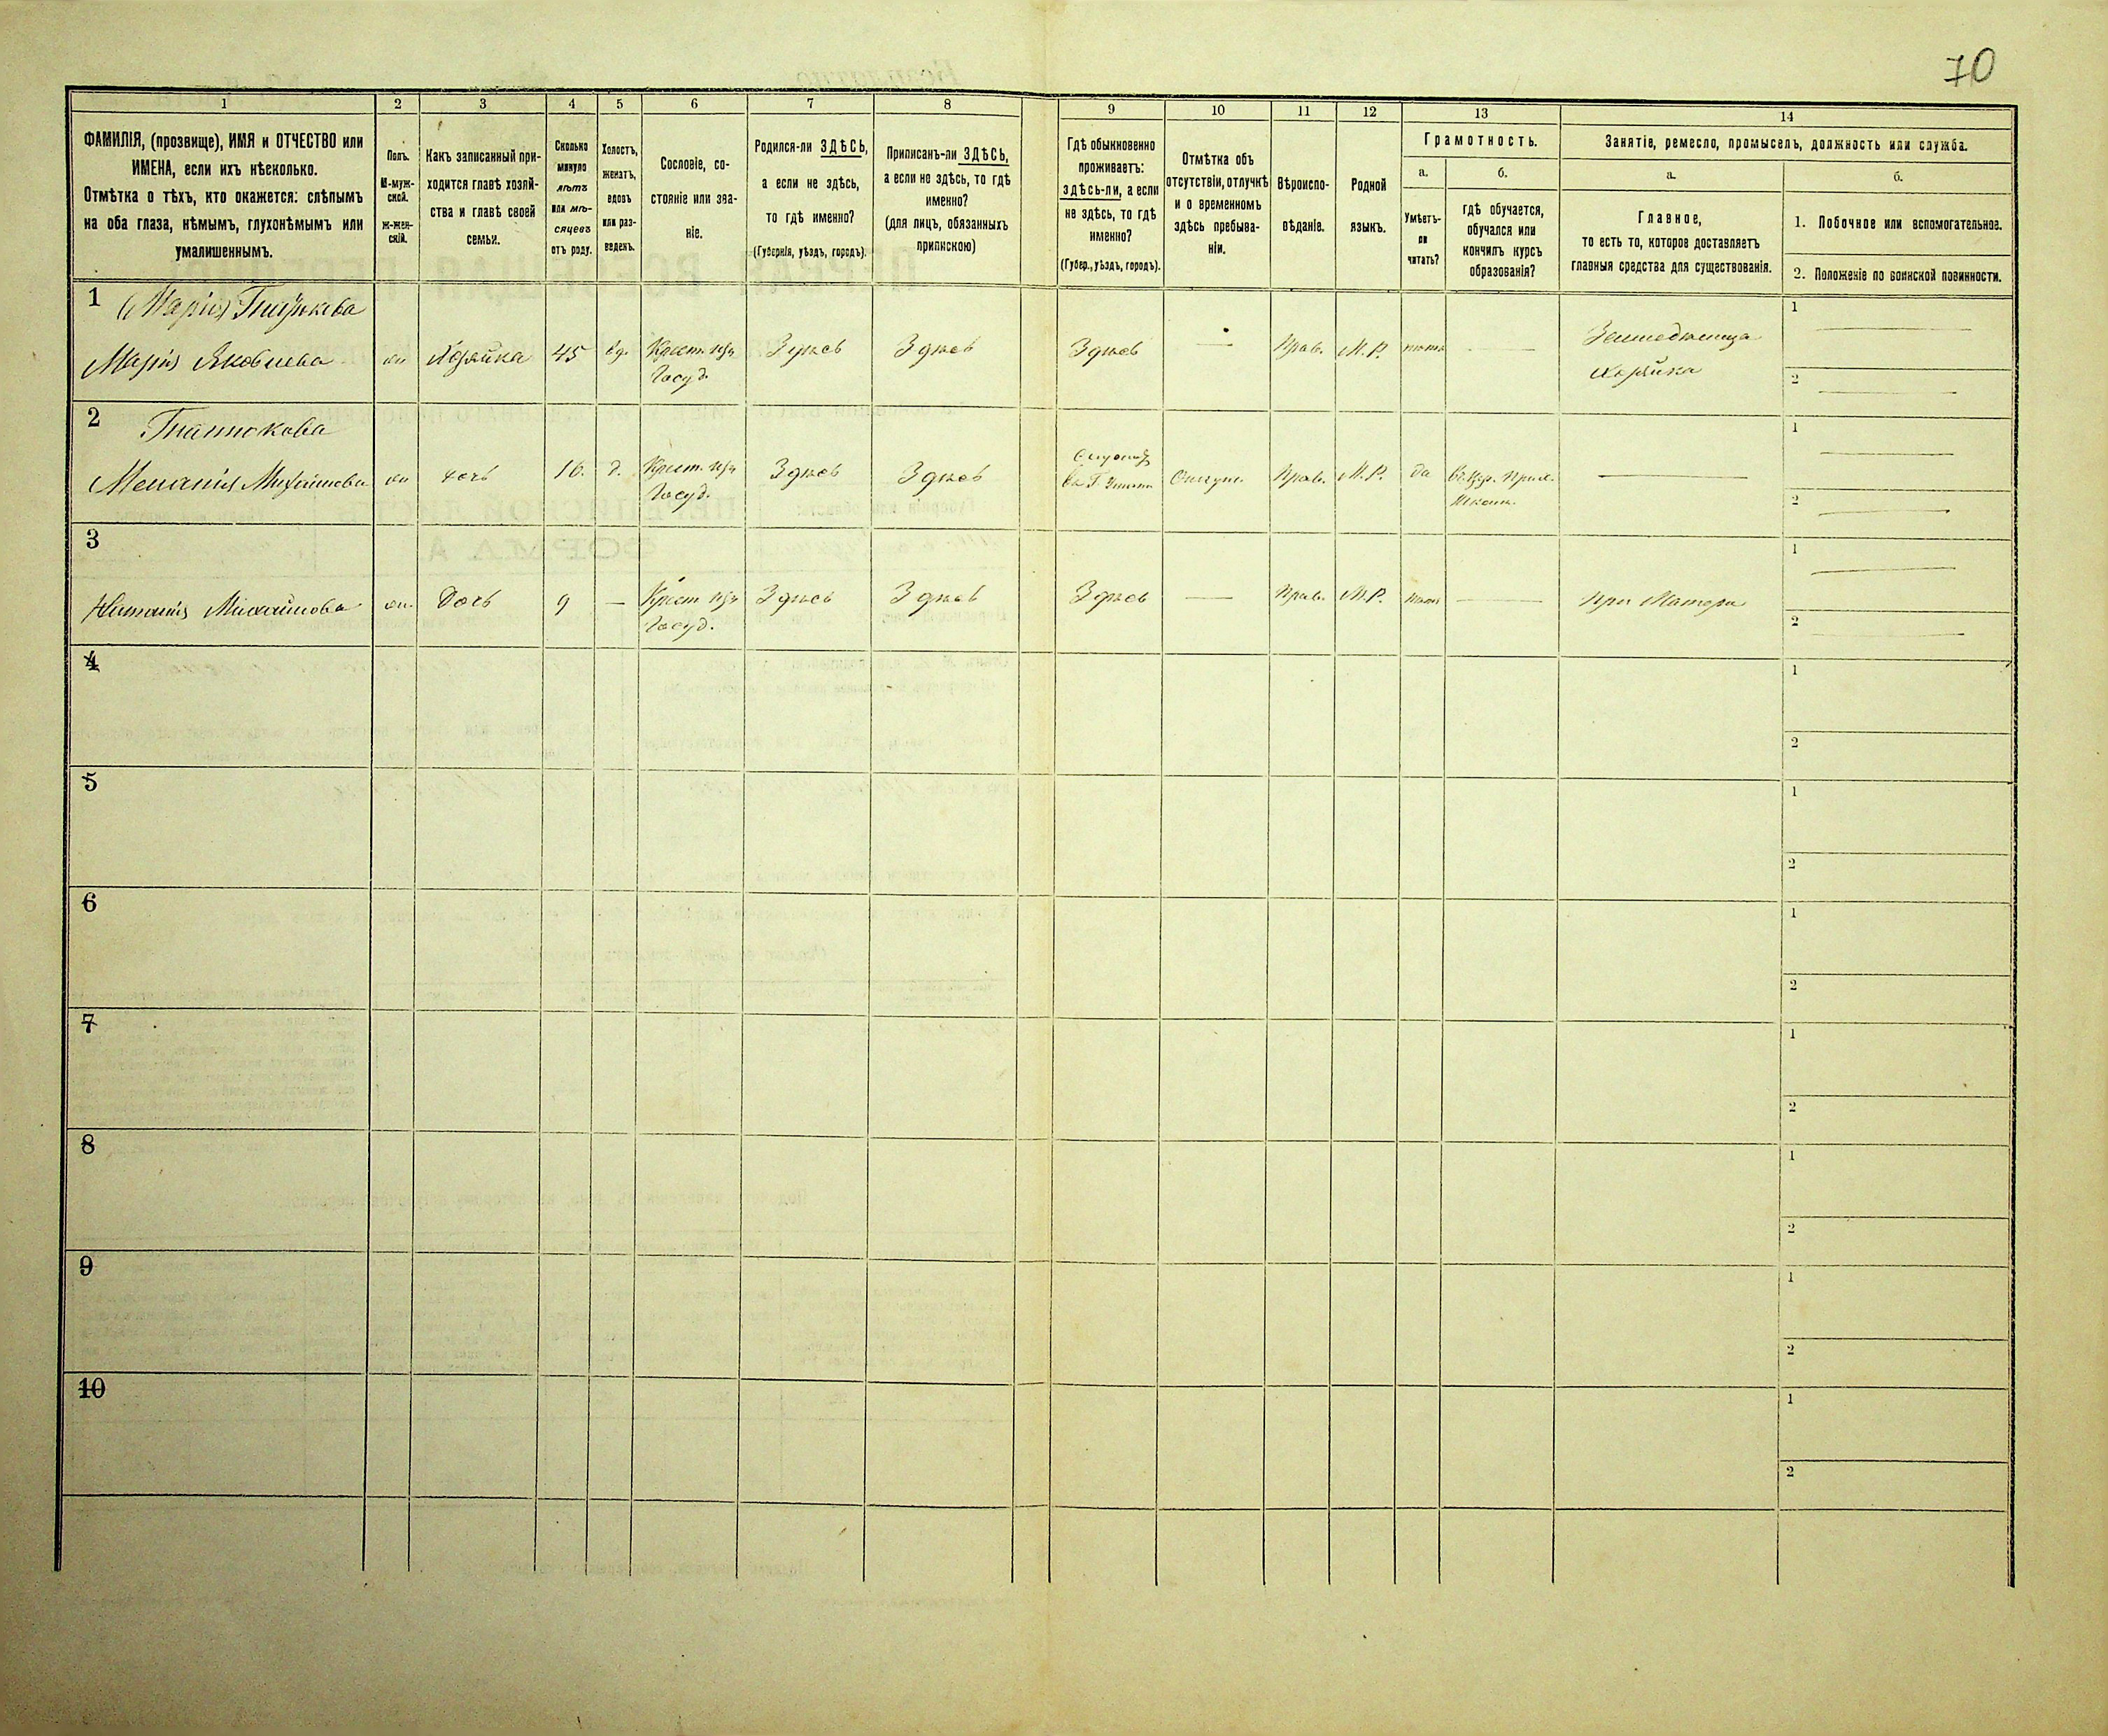 70
1
2
3
4
5
6
7
8
9
10
11
12
13
14
ФАМИЛІЯ, (прозвище), ИМЯ и ОТЧЕСТВО или
ИМЕНА, если ихъ нѣсколько.
Отмѣтка о тѣхъ, кто окажется: слѣпымъ
на оба глаза, нѣмымъ, глухонѣмымъ или
умалишеннымъ.
Полъ.
М-муж-
ской.
ж-жен-
скій.
Какъ записанный при-
ходится главѣ хозяй-
ства и главѣ своей
семьи.
Сколько
минуло
лѣтъ
или мѣ-
сяцевъ
отъ роду.
Холостъ,
женатъ,
вдовъ
или раз-
веденъ.
Сословіе, со-
стояніе или зва-
ніе.
Родился-ли ЗДѢСЬ,
а если не здѣсь,
то гдѣ именно?
(Губернія, уѣздъ, городъ).
Приписанъ-ли ЗДѢСЬ,
а если не здѣсь, то гдѣ
именно?
(для лицъ, обязанныхъ
припискою)
Гдѣ обыкновенно
проживаетъ:
здѣсь-ли, а если
не здѣсь, то гдѣ
именно?
(Губер., уѣздъ, городъ).
Отмѣтка объ
отсутствіи, отлучкѣ
и о временномъ
здѣсь пребыва-
ніи.
Вѣроиспо-
вѣданіе.
Родной
языкъ.
Грамотность.
а.
Умѣетъ-
ли
читать?
б.
гдѣ обучается,
обучался или
кончилъ курсъ
образованія?
Занятіе, ремесло, промыселъ, должность или служба.
а.
Главное,
то есть то, которое доставляетъ
главныя средства для существованія.
б.
1. Побочное или вспомогательное.
2. Положеніе по воинской повинности.
1
(Марія)
Марія Яковлева
ж
Хозяйка
45
вд.
Крест. изъ
Госуд.
Здѣсь
Здѣсь
Здѣсь
—
Прав.
М.Р.
нѣтъ
—
Землѣдѣлица
Хозяйка
1
2
2
Меланія Михайлова
ж
дочь
16.
д.
Крест. изъ
Госуд.
Здѣсь
Здѣсь
Прав.
М.Р.
да
Школѣ
—
1
2
3
Наталія Михайлова
ж.
Дочь
9
—
Крест изъ
Госуд.
Здѣсь
Здѣсь
Здѣсь
—
Прав.
М.Р.
нѣтъ
—
При Матери
1
2
4
1
2
5
1
2
6
1
2
7
1
2
8
1
2
9
1
2
10
1
2